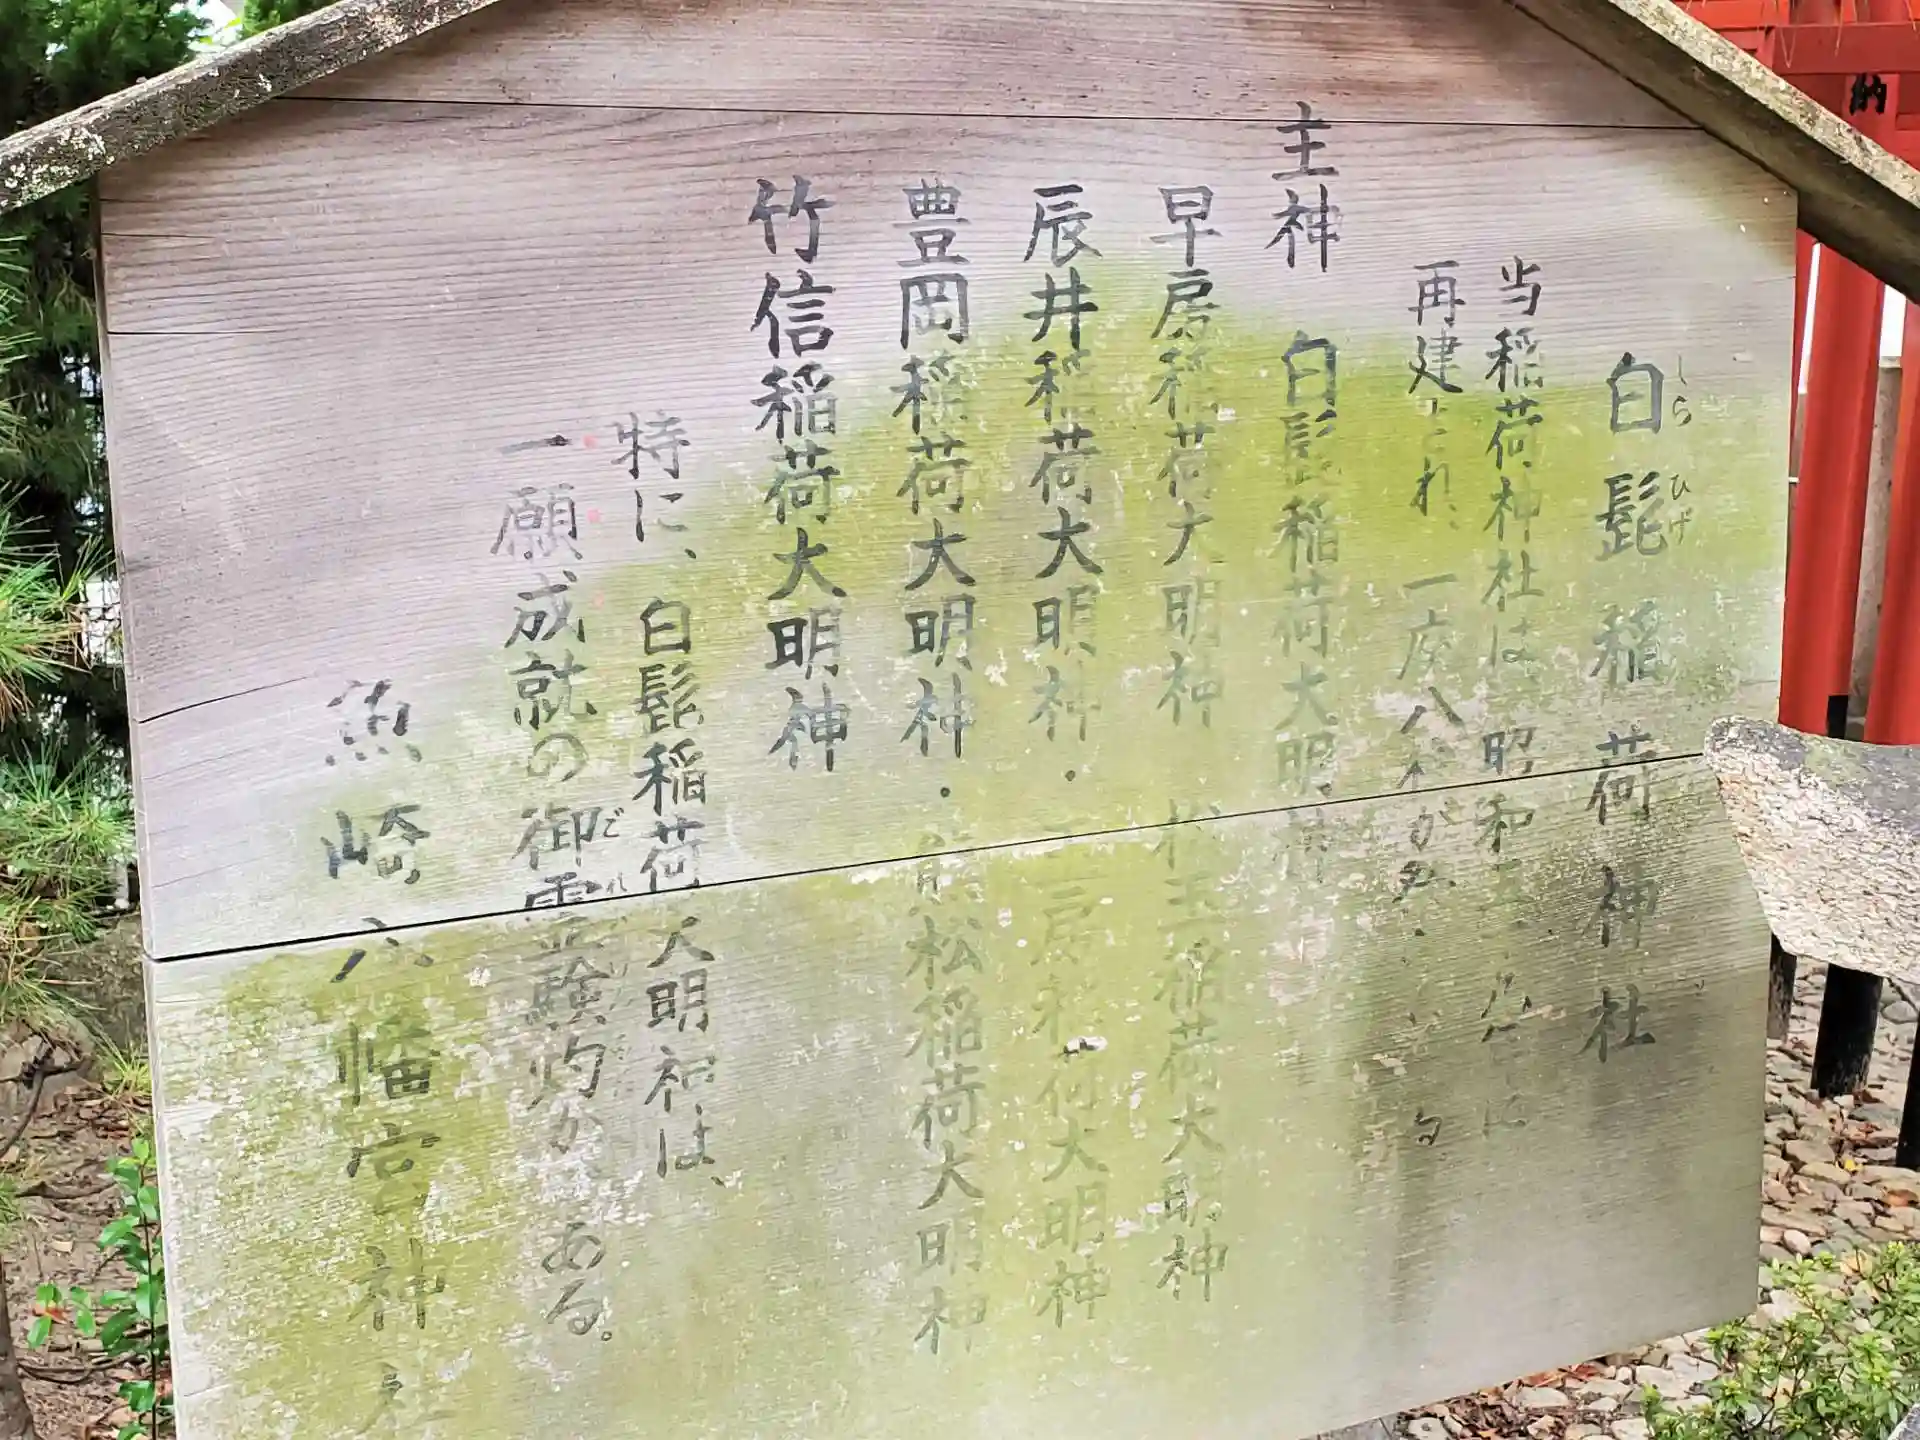 白髭稲荷神社
しらひげ
当稲荷神社は、昭和
再建され、一度八
主神 白髭稲荷大明神
早房稲荷大明神 松玉稲荷大明神
辰井稲荷大明神・ 房稲荷大明神
豊岡稲荷大明神・ 松稲荷大明神
竹信稲荷大明神
特に、白髭稲荷大明神は、
一願成就の御霊験灼かである。
魚崎八幡宮神社
納